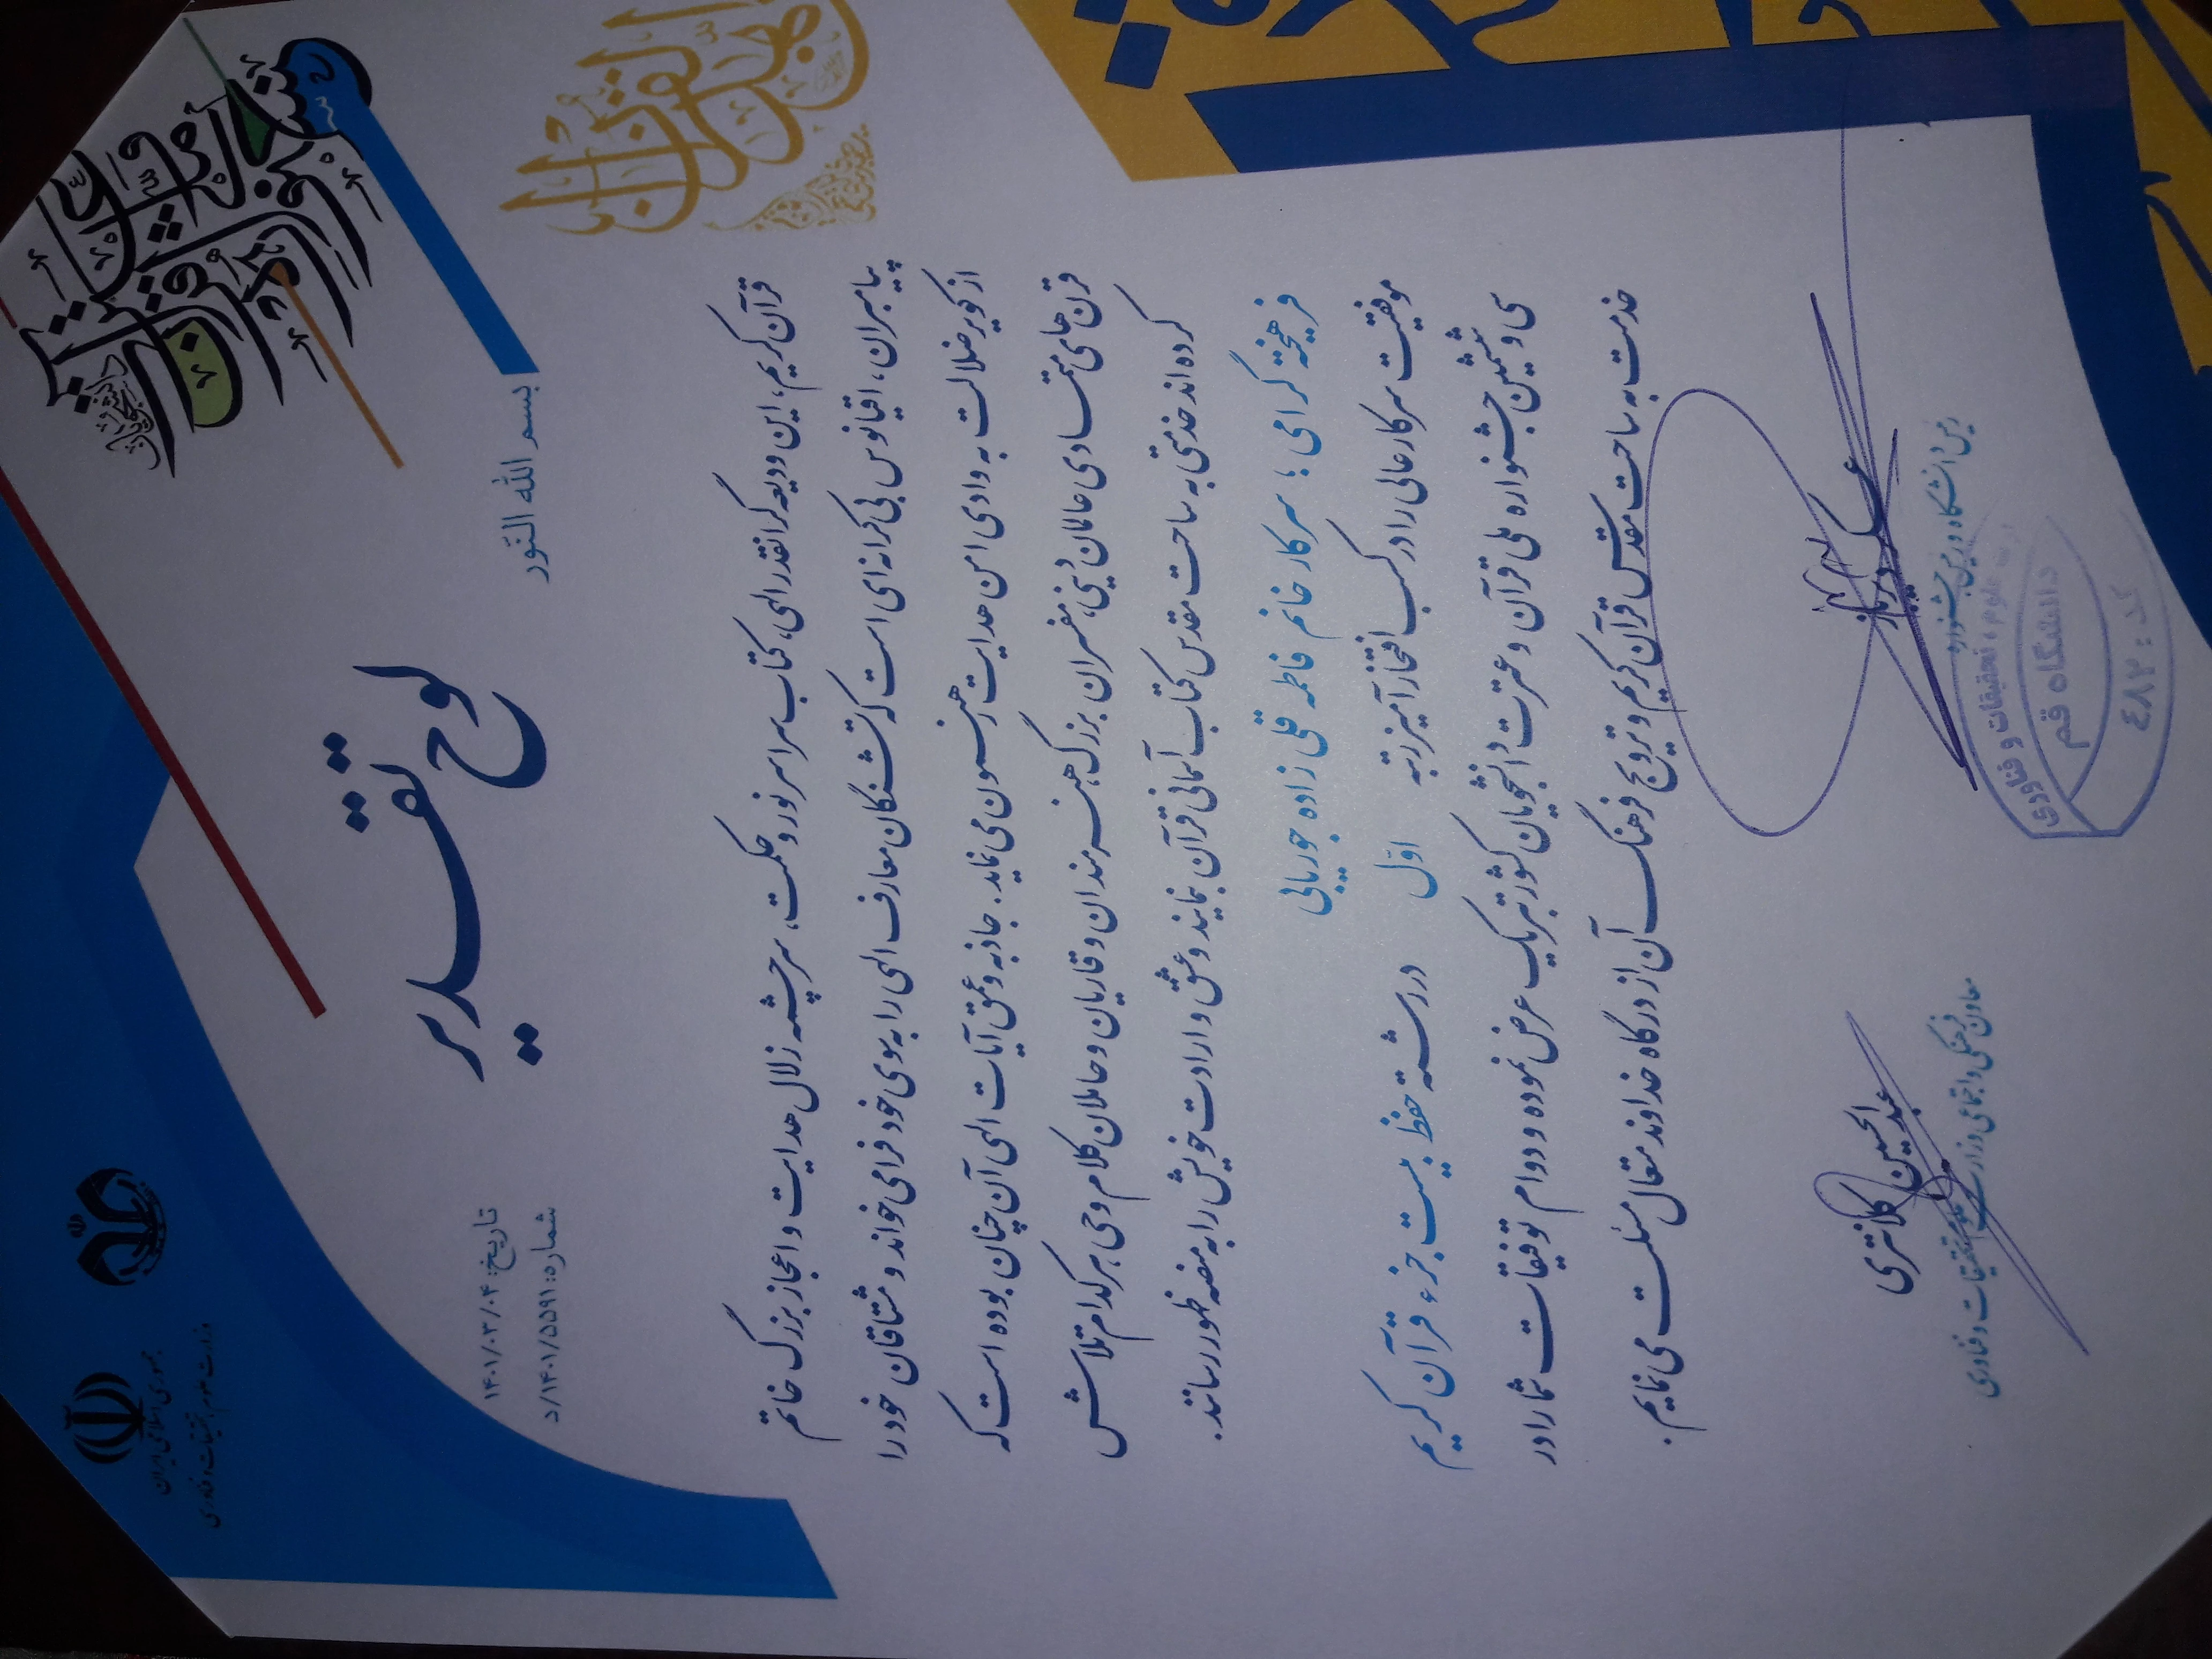 جمهوری اسلامی ایران
وزارت علوم، تحقیقات و فناوری
بسم الله النّور
لوح تقدیر
تاریخ: ۱۴۰۱/۰۳/۰۴
شماره: ۱۴۰۱/۵۵۹۱/د
قرآن کریم، این ودیعه گرانقدر الهی، کتاب سراسر نور و حکمت، سرچشمه زلال هدایت و اعجاز بزرگ خاتم
پیامبران، اقیانوس بی کرانه ای است که تشنگان معارف الهی را به سوی خود فرا می خواند و مشتاقان خود را
از کویر ضلالت به وادی امن هدایت رهنمون می نماید. جاذبه و عمق آیات الهی آن چنان بوده است که
قرن های متمادی عالمان دینی، مفسران بزرگ، هنرمندان و قاریان و حاملان کلام وحی، هر کدام تلاش
کرده اند خدمتی به ساحت مقدس کتاب آسمانی قرآن بنمایند و عشق و ارادت خویش را به منصه ظهور رسانند.
فرهیخته گرامی؛ سرکار خانم فاطمه قلی زاده جورپایی
موفقیت سرکارعالی را در کسب افتخارآمیز رتبه اوّل در رشته حفظ بیست جزء قرآن کریم
سی و ششمین جشنواره ملی قرآن و عترت دانشجویان کشور تبریک عرض نموده و دوام توفیقات شما را در
خدمت به ساحت مقدس قرآن کریم و ترویج فرهنگ آن از درگاه خداوند متعال مسئلت می نمایم.
رئیس دانشگاه و رئیس جشنواره
عبدالحسین کلانتری
معاون فرهنگی و اجتماعی وزارت علوم، تحقیقات و فناوری
علوم، تحقیقات و فناوری
دانشگاه قم
کد: ٤٨٢